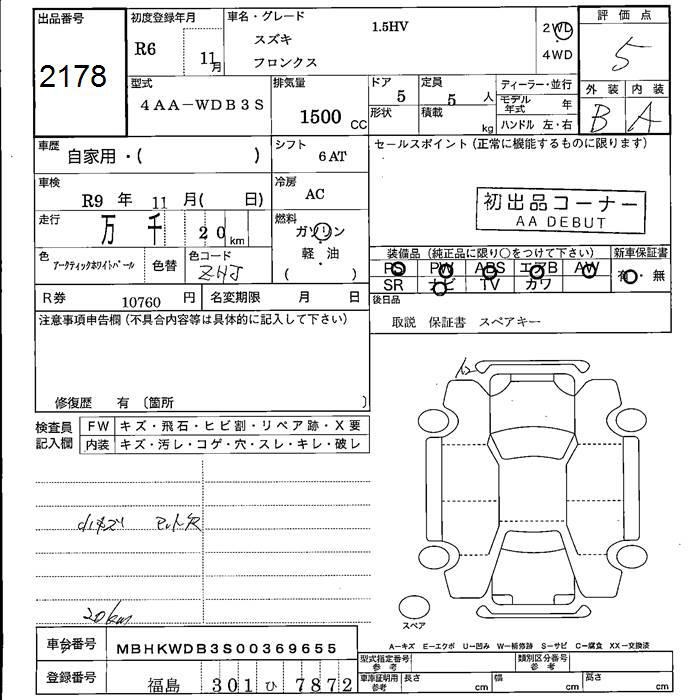 出品番号
2178
初度登録年月
R6 11月
車名・グレード
1.5HV
スズキ
フロンクス
2WD
4WD
評価点
5
外装 内装
B A
型式
4AA-WDB3S
排気量
1500 CC
ドア 5
形状
定員 5 人
積載 kg
ディーラー・並行
モデル年式 年
ハンドル 左・右
車歴
自家用・( )
シフト
6AT
セールスポイント(正常に機能するものに限ります)
初出品コーナー
AA DEBUT
車検
R9 年 11 月( 日)
冷房
AC
走行
万 千 20 km
燃料
ガソリン
軽・油
( )
色
アークティックホワイトパール
色替
色コード
ZHJ
装備品(純正品に限り○をつけて下さい)
新車保証書
PS PW ABS エアB AW
有・無
SR ナビ TV カワ
R券 10760 円
名変期限 月 日
後日品
取説 保証書 スペアキー
注意事項申告欄(不具合内容等は具体的に記入して下さい)
修復歴 有 〔箇所 〕
検査員
記入欄
FW キズ・飛石・ヒビ割・リペア跡・X要
内装 キズ・汚レ・コゲ・穴・スレ・キレ・破レ
小キズ マット欠
20km
スペア
A=キズ E=エクボ U=凹み W=補修跡 S=サビ C=腐食 XX=交換済
車台番号
MBHKWDB3S00369655
登録番号
福島 301 ひ 7872
型式指定番号
参考
類別区分番号
参考
車庫証明用
参考
長さ cm
幅 cm
高さ cm